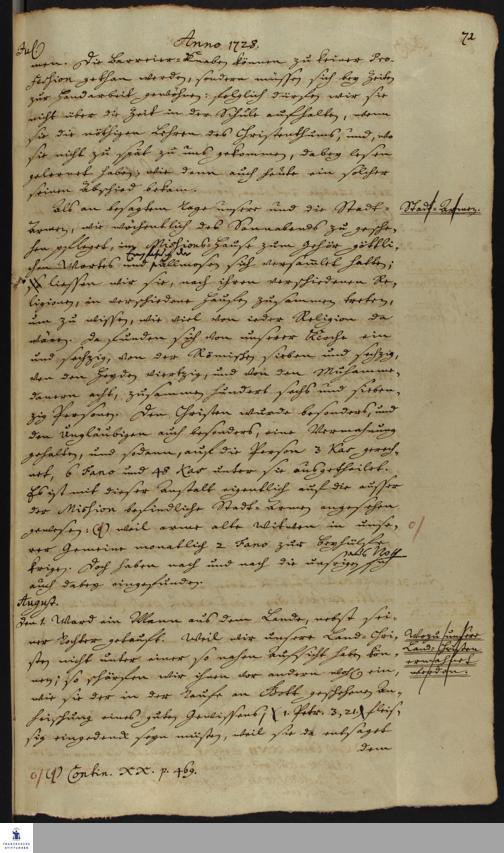 72
Anno 1728.
Jul.
men. Die Barreier-Knaben können zu keiner Pro-
feßion gethan werden, sondern müssen sich bey Zeiten
zur Handarbeit gewöhnen: folglich dürfen wir sie
nicht über die Zeit in der Schule aufhalten, wenn
sie die nöthigen Lehren des Christenthums, und, wo
sie nicht zu spät zu uns gekommen, dabey lesen
gelernet haben; wie denn auch heute ein solcher
seinen Abschied bekam.
Als an besagtem Tage unsere und die Stadt-
Armen, wie wöchentlich des Sonnabends zu gesche-
hen pfleget, im Mißions-Hause zum Gehör göttli-
chen Wortes und Allmosen sich versamlet hatten;
liessen wir sie, nach ihren verschiedenen Re-
ligionen, in verschiedene Haufen zusammen treten,
um zu wissen, wie viel von jeder Religion da
wären. Da funden sich von unserer Kirche ein
und sechzig, von der Römischen sieben und sechzig,
von den Heyden vierzig, und von den Muhamme-
danern acht, zusammen hundert sechs und sieben-
zig Personen. Den Christen wurde besonders, und
den Ungläubigen auch besonders, eine Vermahnung
gehalten, und sodann, auf die Person 3 Kas gerech-
net, 6 Fano und 48 Kas unter sie ausgetheilet.
Es ist mit dieser Anstalt eigentlich auf die ausser
der Mißion befindliche Stadt-Armen angesehen
gewesen: weil arme alte Witwen in unse-
rer Gemeine monatlich 2 Fano zur Beyhülfe
kriegen. Doch haben nach und nach die unsrigen sich
auch dabey eingefunden.
Stadt-Armen.
August.
den 1. Ward ein Mann aus dem Lande, nebst sei-
ner Tochter getauft. Weil wir unsere Land-Chri-
sten nicht unter einer so nahen Aufsicht haben kön-
nen; so schärfen wir ihnen vor andern wohl ein,
wie sie der in der Taufe an Gott geschehenen An-
heischung eines guten Gewissens, (1. Petr. 3, 21.) fleis-
sig eingedenck seyn müsten, weil sie da entsaget
dem
Wozu unsere
Land-Christen
ermahnet
werden.
Contin. XX. p. 469.
FRANCKESCHE
STIFTUNGEN